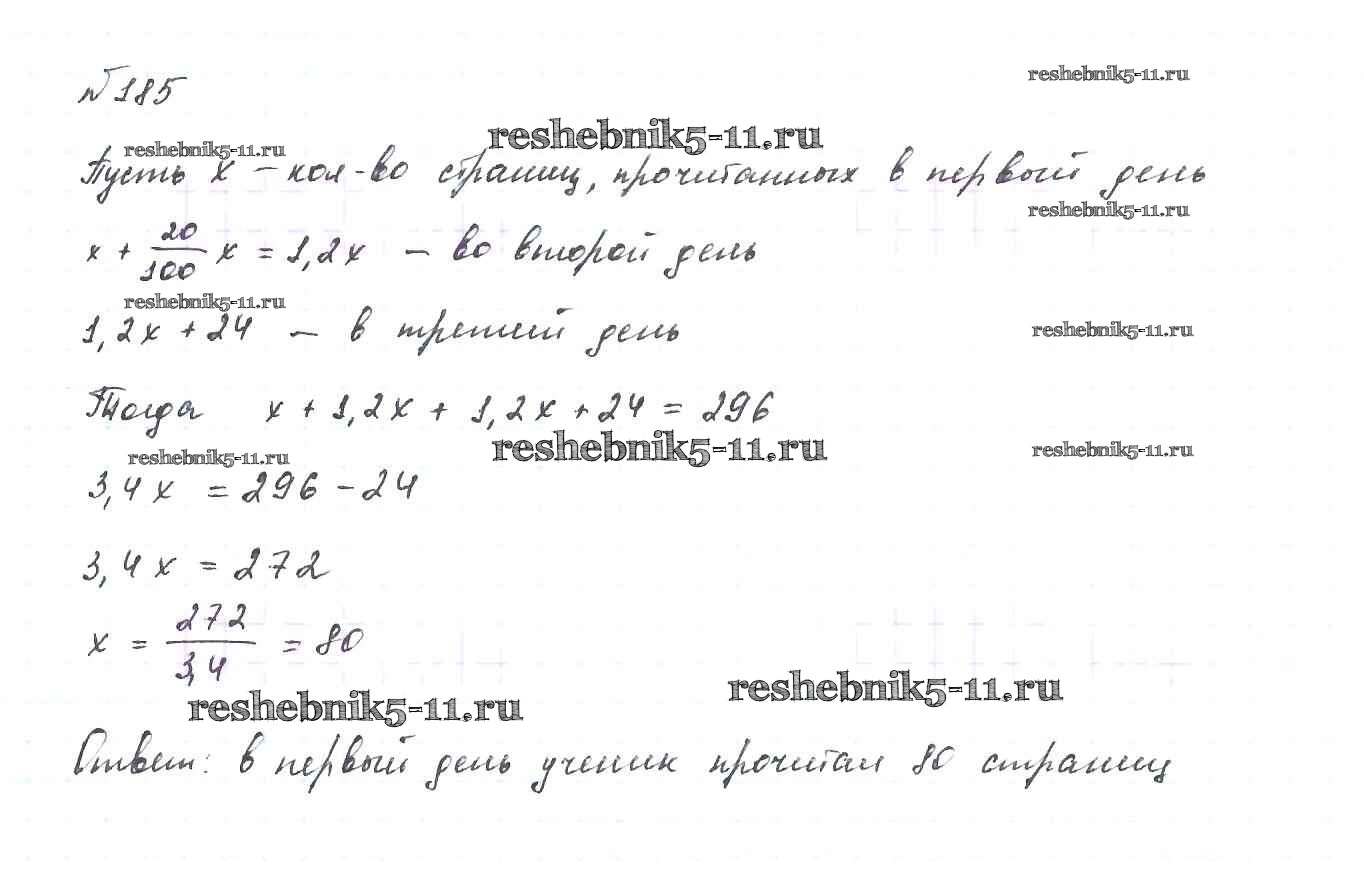 №185
reshebnik5-11.ru
reshebnik5-11.ru
reshebnik5-11.ru
Пусть x – кол-во страниц, прочитанных в первый день
reshebnik5-11.ru
x + 20/100 x = 1,2x – во второй день
reshebnik5-11.ru
1,2x + 24 – в третий день
reshebnik5-11.ru
Тогда x + 1,2x + 1,2x + 24 = 296
reshebnik5-11.ru
reshebnik5-11.ru
reshebnik5-11.ru
3,4x = 296 - 24
3,4x = 272
x = 272/3,4 = 80
reshebnik5-11.ru
reshebnik5-11.ru
Ответ: в первый день ученик прочитал 80 страниц